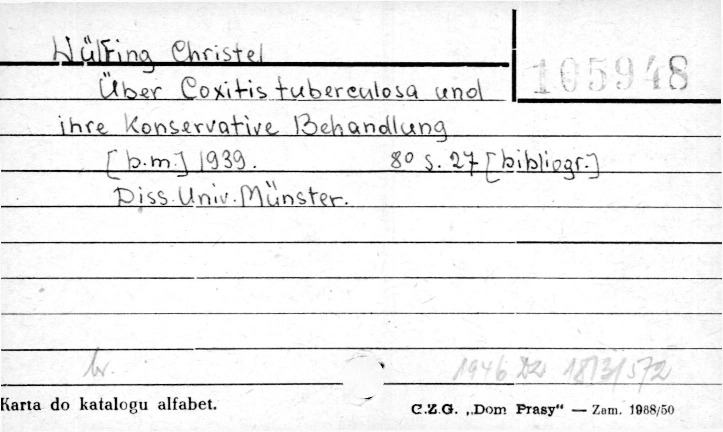 Wülfing Christel
105948
Über Coxitis tuberculosa und
ihre Konservative Behandlung
[b.m.] 1939. 80 s. 27 [bibliogr.]
Diss. Univ. Münster.
br. 1946 18/3/572
Karta do katalogu alfabet.
C.Z.G. „Dom Prasy“ — Zam. 1988/50